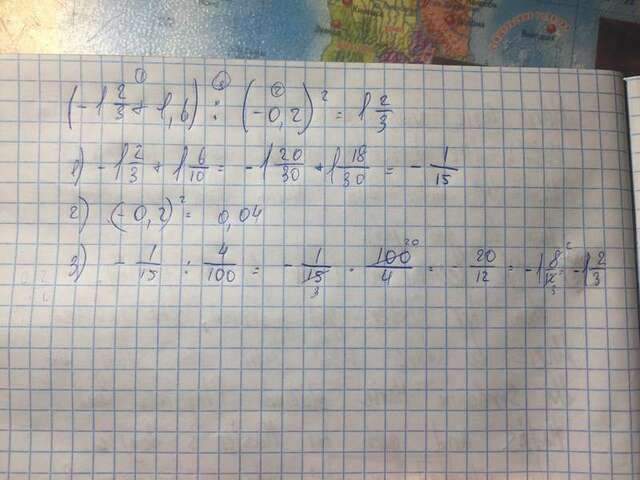 (-1 2/3 + 1,6) : (-0,2)² = 1 2/3
1) -1 2/3 + 1 6/10 = -1 20/30 + 1 18/30 = - 1/15
2) (-0,2)² = 0,04
3) - 1/15 : 4/100 = - 1/15 · 100/4 = - 20/12 = -1 8/12 = -1 2/3